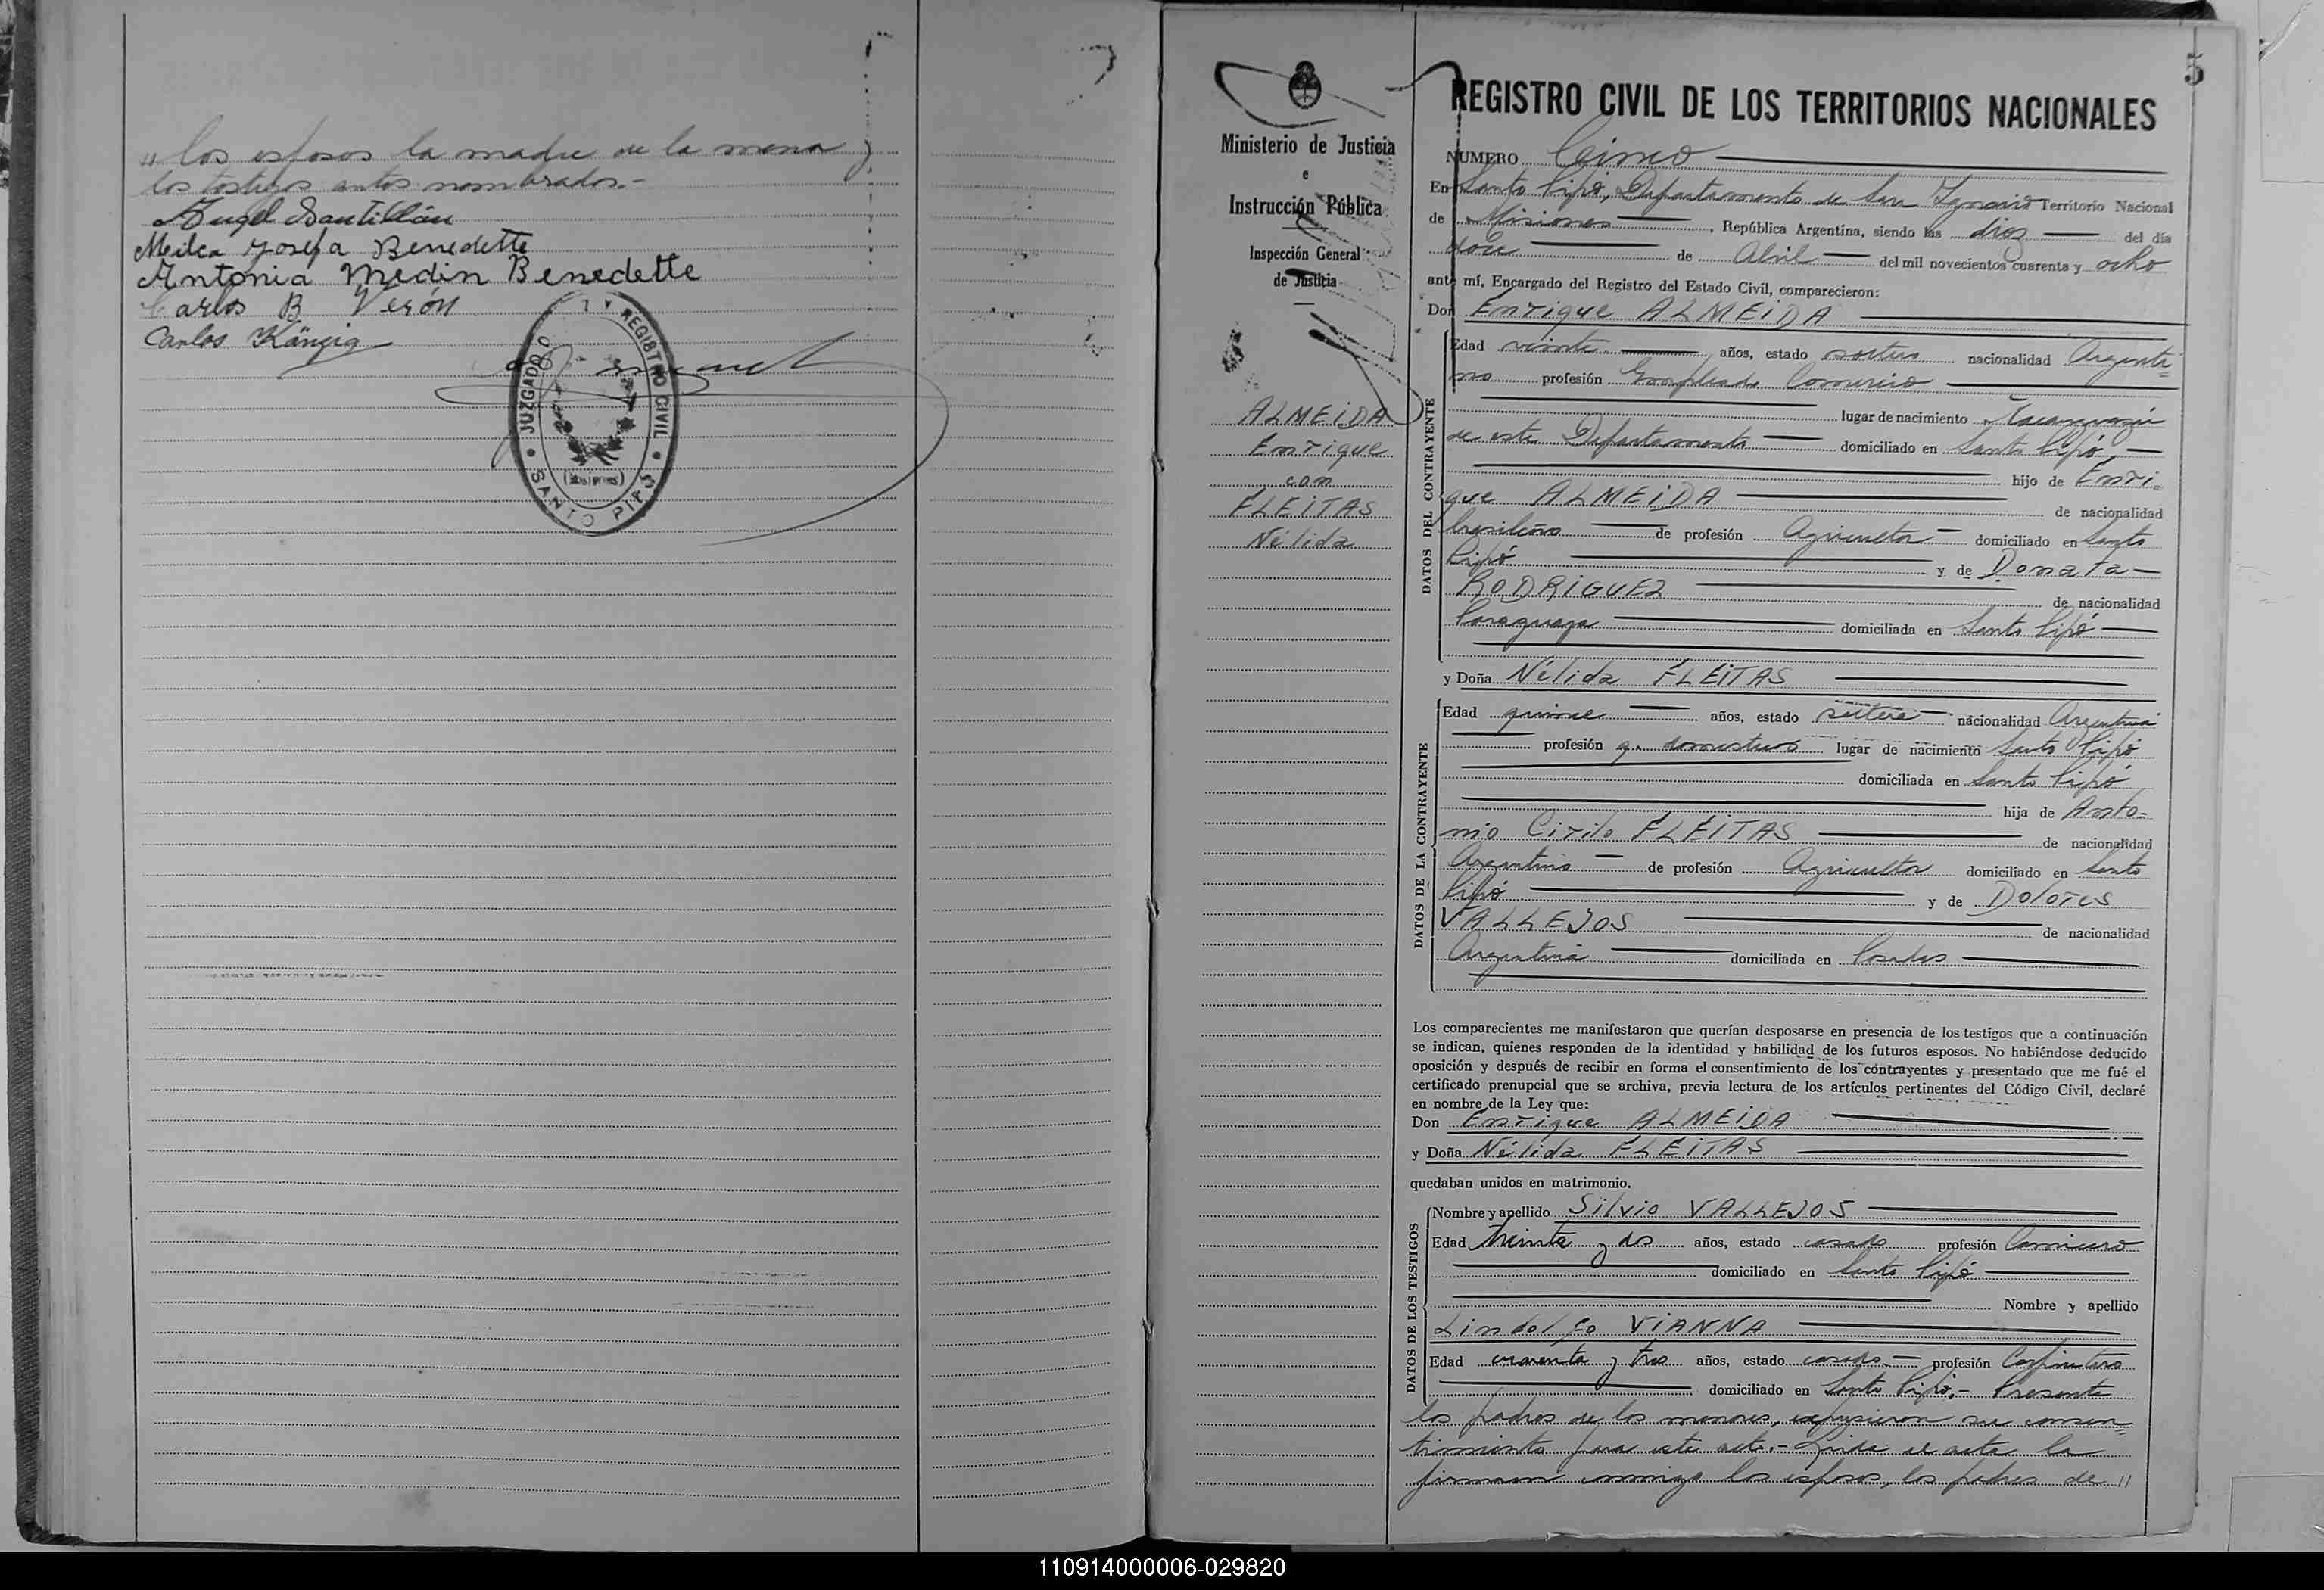 " los esposos la madre de la menor y
los testigos antes nombrados.-
Angel Santillán
Milca Josefa Benedette
Antonia Medin Benedette
Carlos B Verón
Carlos Känzig
JUZGADO Y REGISTRO CIVIL
(Misiones)
SANTO PIPÓ
5
Ministerio de Justicia
e
Instrucción Pública
Inspección General
de Justicia
ALMEIDA
Enrique
con
FLEITAS
Nélida
REGISTRO CIVIL DE LOS TERRITORIOS NACIONALES
NUMERO Cinco
En Santo Pipó, Departamento de San Ignacio Territorio Nacional
de Misiones, República Argentina, siendo las diez del día
doce de Abril del mil novecientos cuarenta y ocho
ante mí, Encargado del Registro del Estado Civil, comparecieron:
Don Enrique ALMEIDA
DATOS DEL CONTRAYENTE
Edad veinte años, estado soltero nacionalidad Argenti=
no profesión Empleado Comercio
lugar de nacimiento
de este Departamento domiciliado en Santo Pipó,
hijo de Enri=
que ALMEIDA de nacionalidad
brasilero de profesión Agricultor domiciliado en Santo
Pipó y de Donata
RODRIGUEZ de nacionalidad
Paraguaya domiciliada en Santo Pipó
y Doña Nélida FLEITAS
DATOS DE LA CONTRAYENTE
Edad quince años, estado soltera nacionalidad Argentina
profesión q. domesticos lugar de nacimiento Santo Pipó
domiciliada en Santo Pipó
hija de Anto=
nio Cirilo FLEITAS de nacionalidad
Argentino de profesión Agricultor domiciliado en Santo
Pipó y de Dolores
VALLEJOS de nacionalidad
Argentina domiciliada en Posadas
Los comparecientes me manifestaron que querían desposarse en presencia de los testigos que a continuación
se indican, quienes responden de la identidad y habilidad de los futuros esposos. No habiéndose deducido
oposición y después de recibir en forma el consentimiento de los contrayentes y presentado que me fué el
certificado prenupcial que se archiva, previa lectura de los artículos pertinentes del Código Civil, declaré
en nombre de la Ley que:
Don Enrique ALMEIDA
y Doña Nélida FLEITAS
quedaban unidos en matrimonio.
DATOS DE LOS TESTIGOS
Nombre y apellido Silvio VALLEJOS
Edad treinta y dos años, estado casado profesión
domiciliado en Santo Pipó
Nombre y apellido
Lindolfo VIANNA
Edad cuarenta y tres años, estado casado.- profesión Carpintero
domiciliado en Santo Pipó.- Presente
los padres de los menores, expusieron su consen=
timiento para este acto.- Leida el acta la
firman conmigo los esposos, los padres de "
110914000006-029820